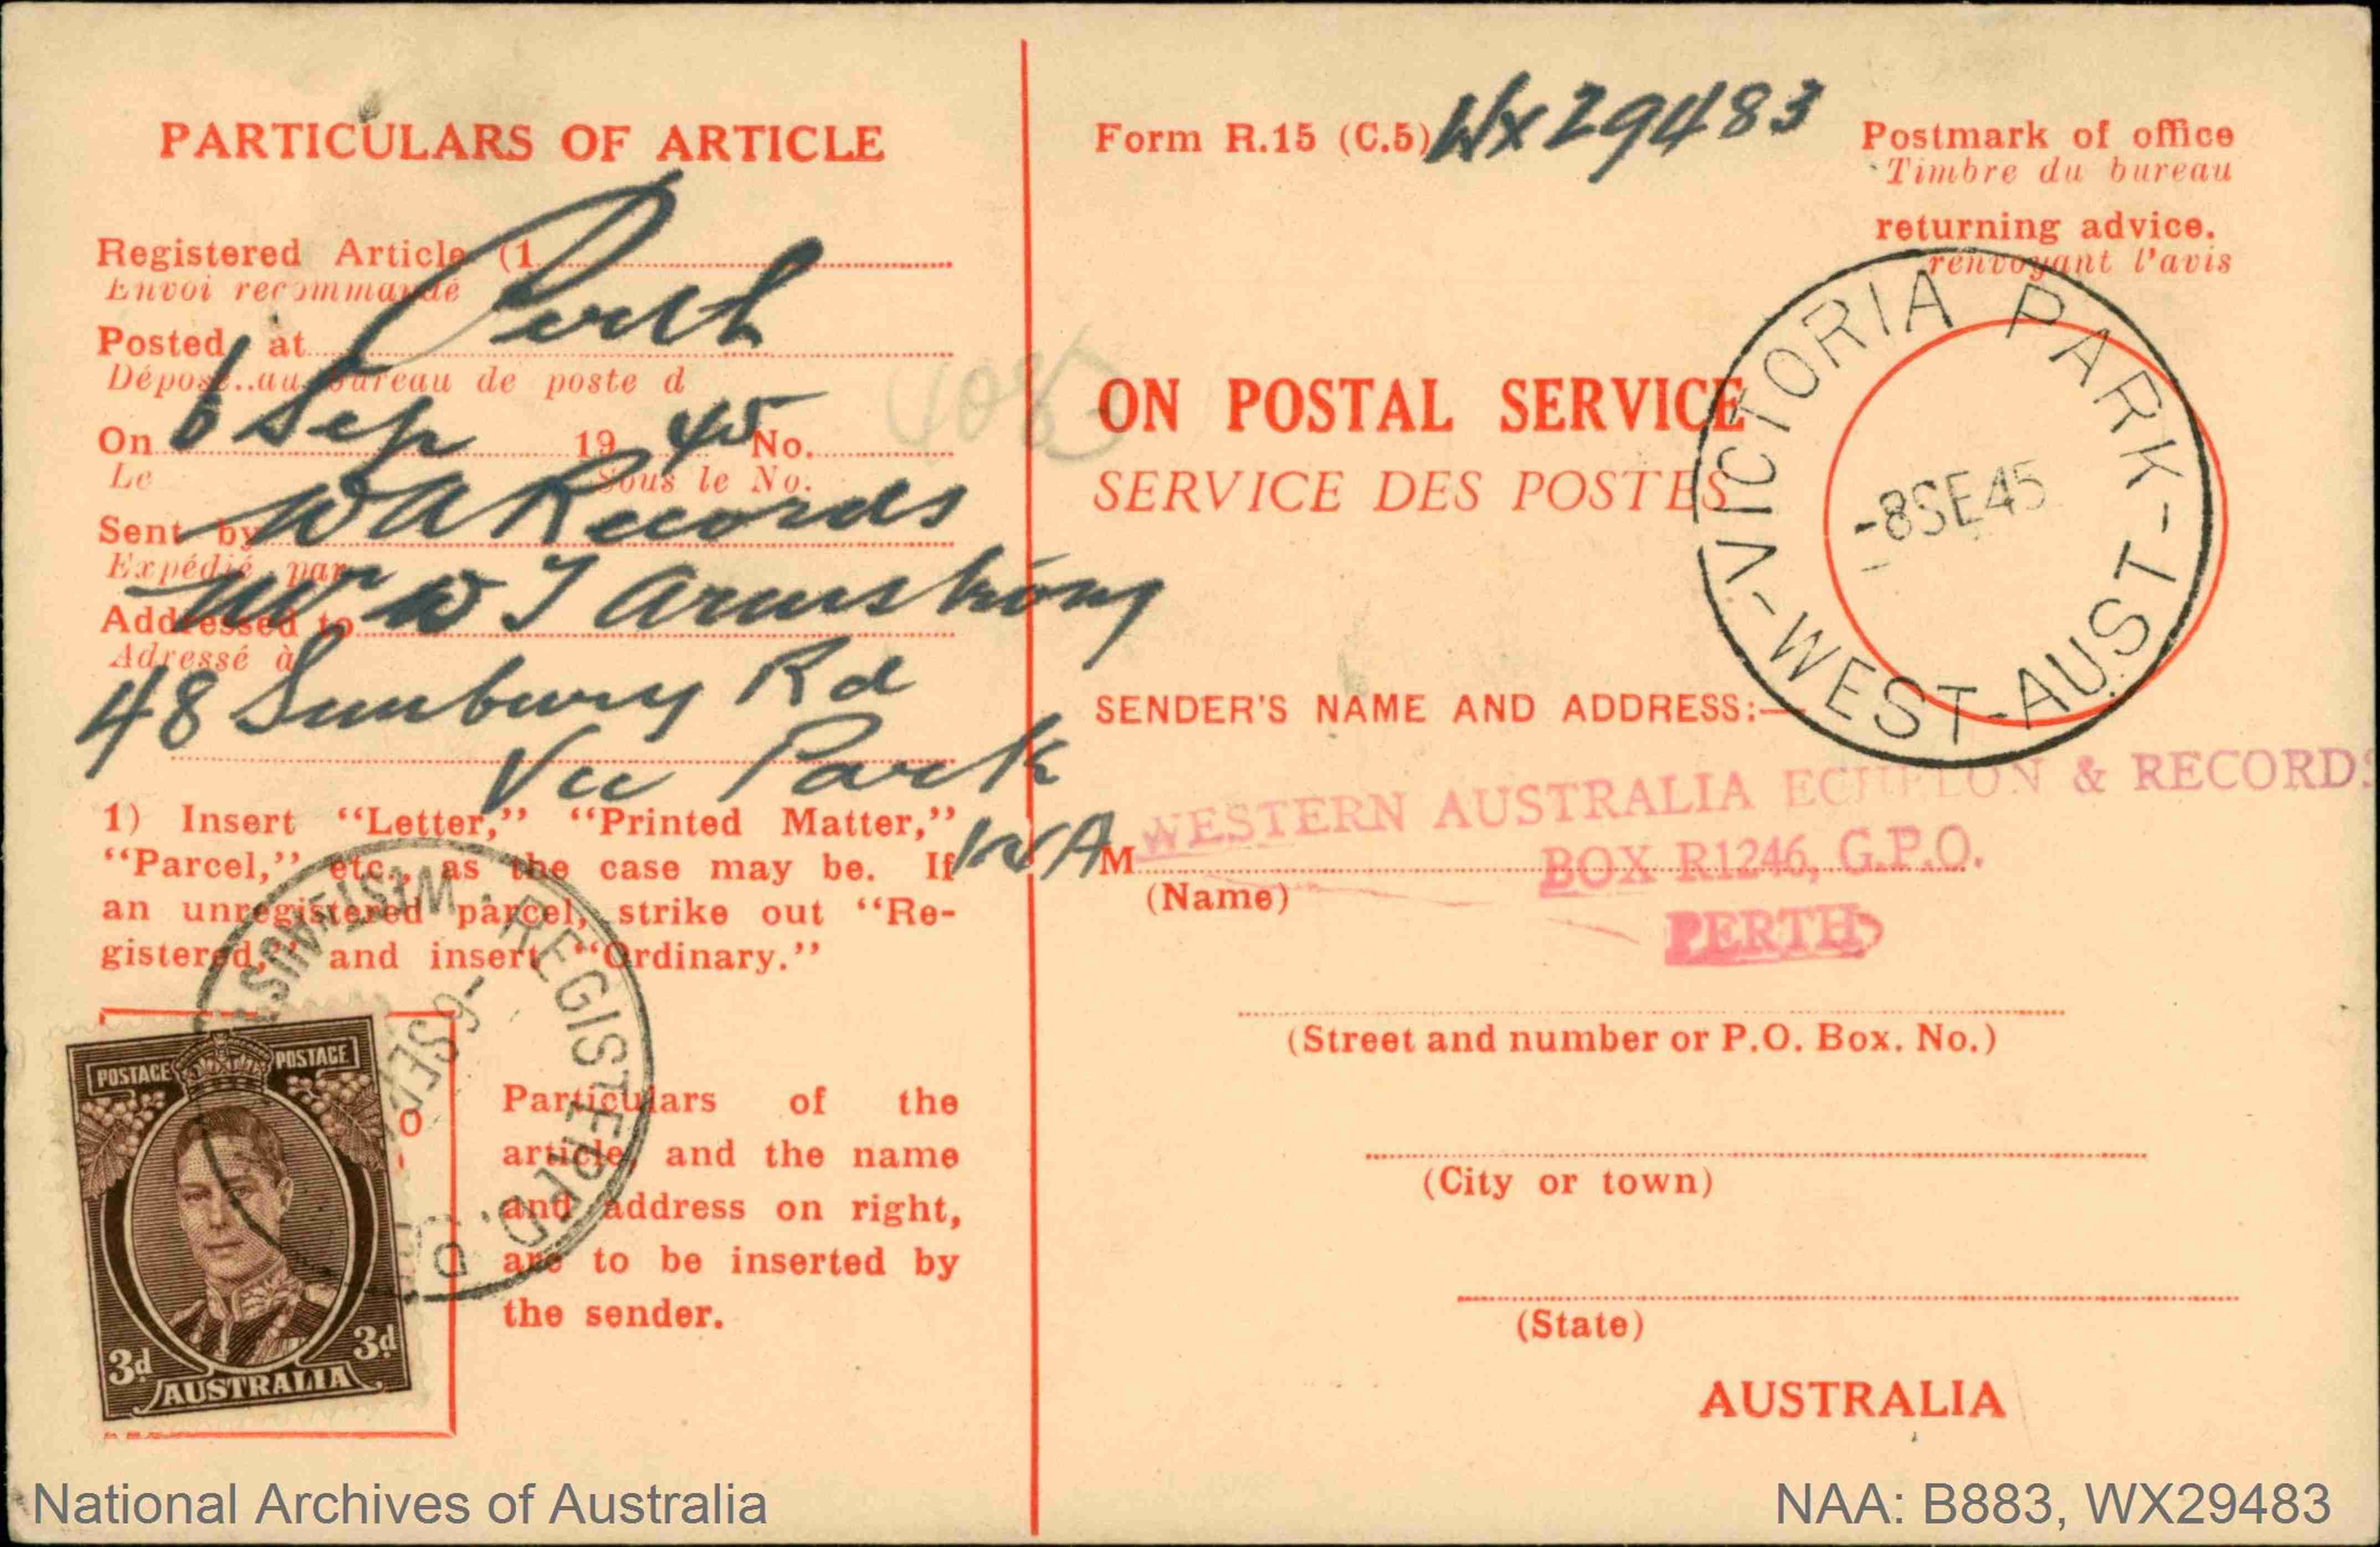 PARTICULARS OF ARTICLE
Registered Article (1
Envoi recommandé
Posted at Perth
Déposé au bureau de poste d
On 6 Sep 1945 No.
Le Sous le No.
Sent by W A Records
Expédié par
Addressed to Mr W J Armstrong
Adressé à
48 Sunbury Rd
Vic Park
WA
1) Insert “Letter,” “Printed Matter,”
“Parcel,” etc., as the case may be. If
an unregistered parcel, strike out “Re-
gistered,” and insert “Ordinary.”
REGISTERED.
WEST AUST
-6 SE
POSTAGE POSTAGE
3d 3d
AUSTRALIA
Particulars of the
article, and the name
and address on right,
are to be inserted by
the sender.
Form R.15 (C.5) WX29483
Postmark of office
Timbre du bureau
returning advice.
renvoyant l'avis
VICTORIA PARK
-8SE45
-WEST-AUST-
ON POSTAL SERVICE
SERVICE DES POSTES
SENDER'S NAME AND ADDRESS:—
WESTERN AUSTRALIA ECHELON & RECORDS
M BOX R1246, G.P.O.
(Name)
PERTH
(Street and number or P.O. Box. No.)
(City or town)
(State)
AUSTRALIA
National Archives of Australia
NAA: B883, WX29483